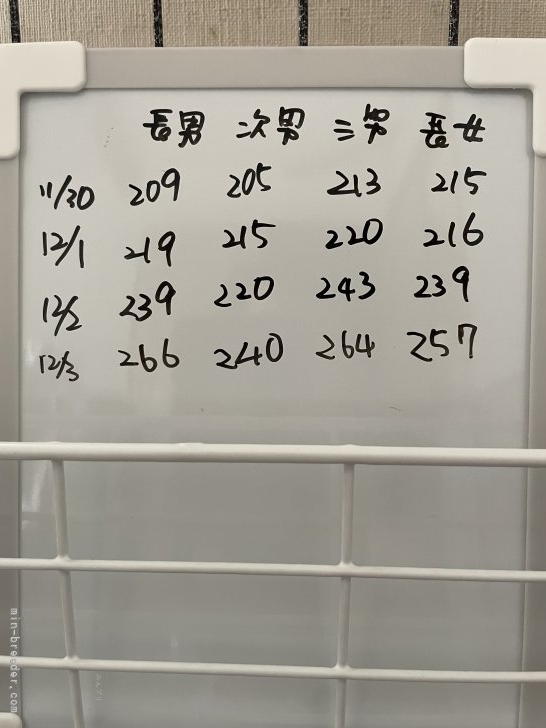 長男 次男 三男 長女
11/30 209 205 213 215
12/1 219 215 220 216
12/2 239 220 243 239
12/3 266 240 264 257
min-breeder.com